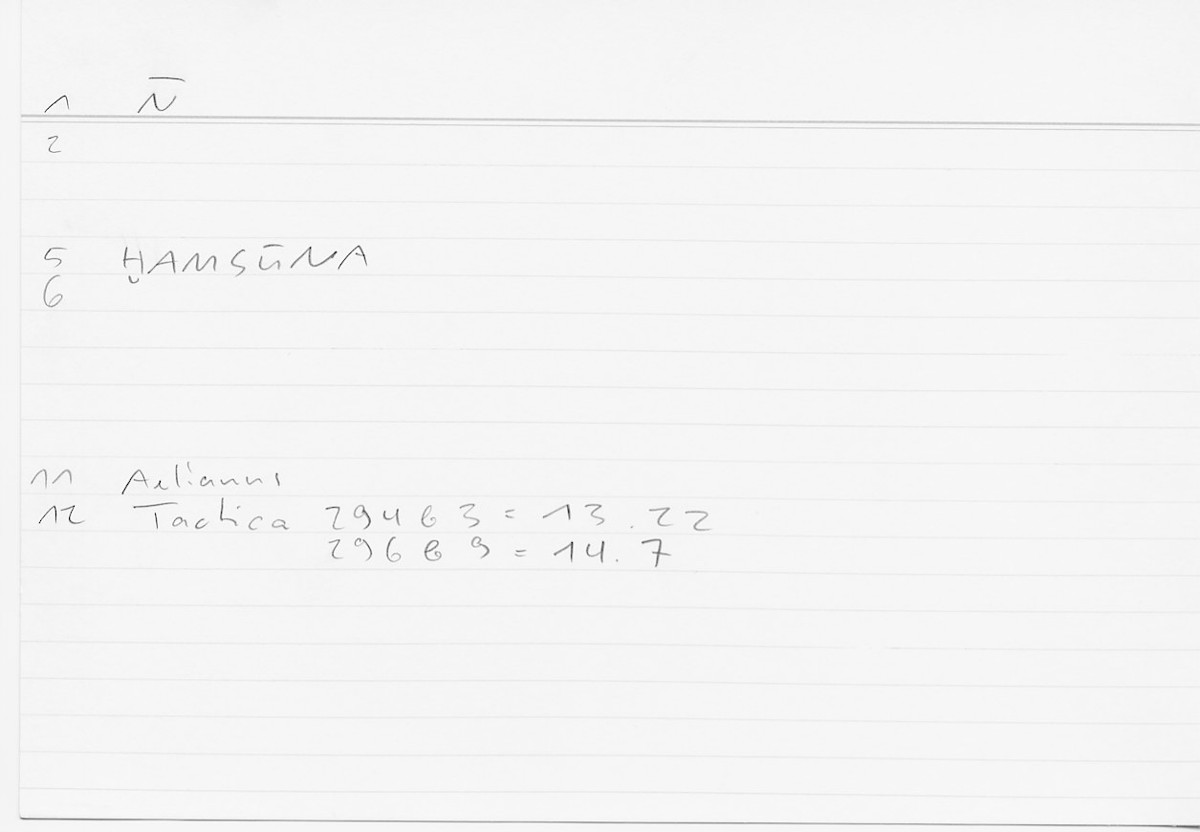 1 N̅
2
5 ḪAMSŪNA
6
11 Aelianus
12 Tactica 294 b 3 = 13.22
296 b 9 = 14.7